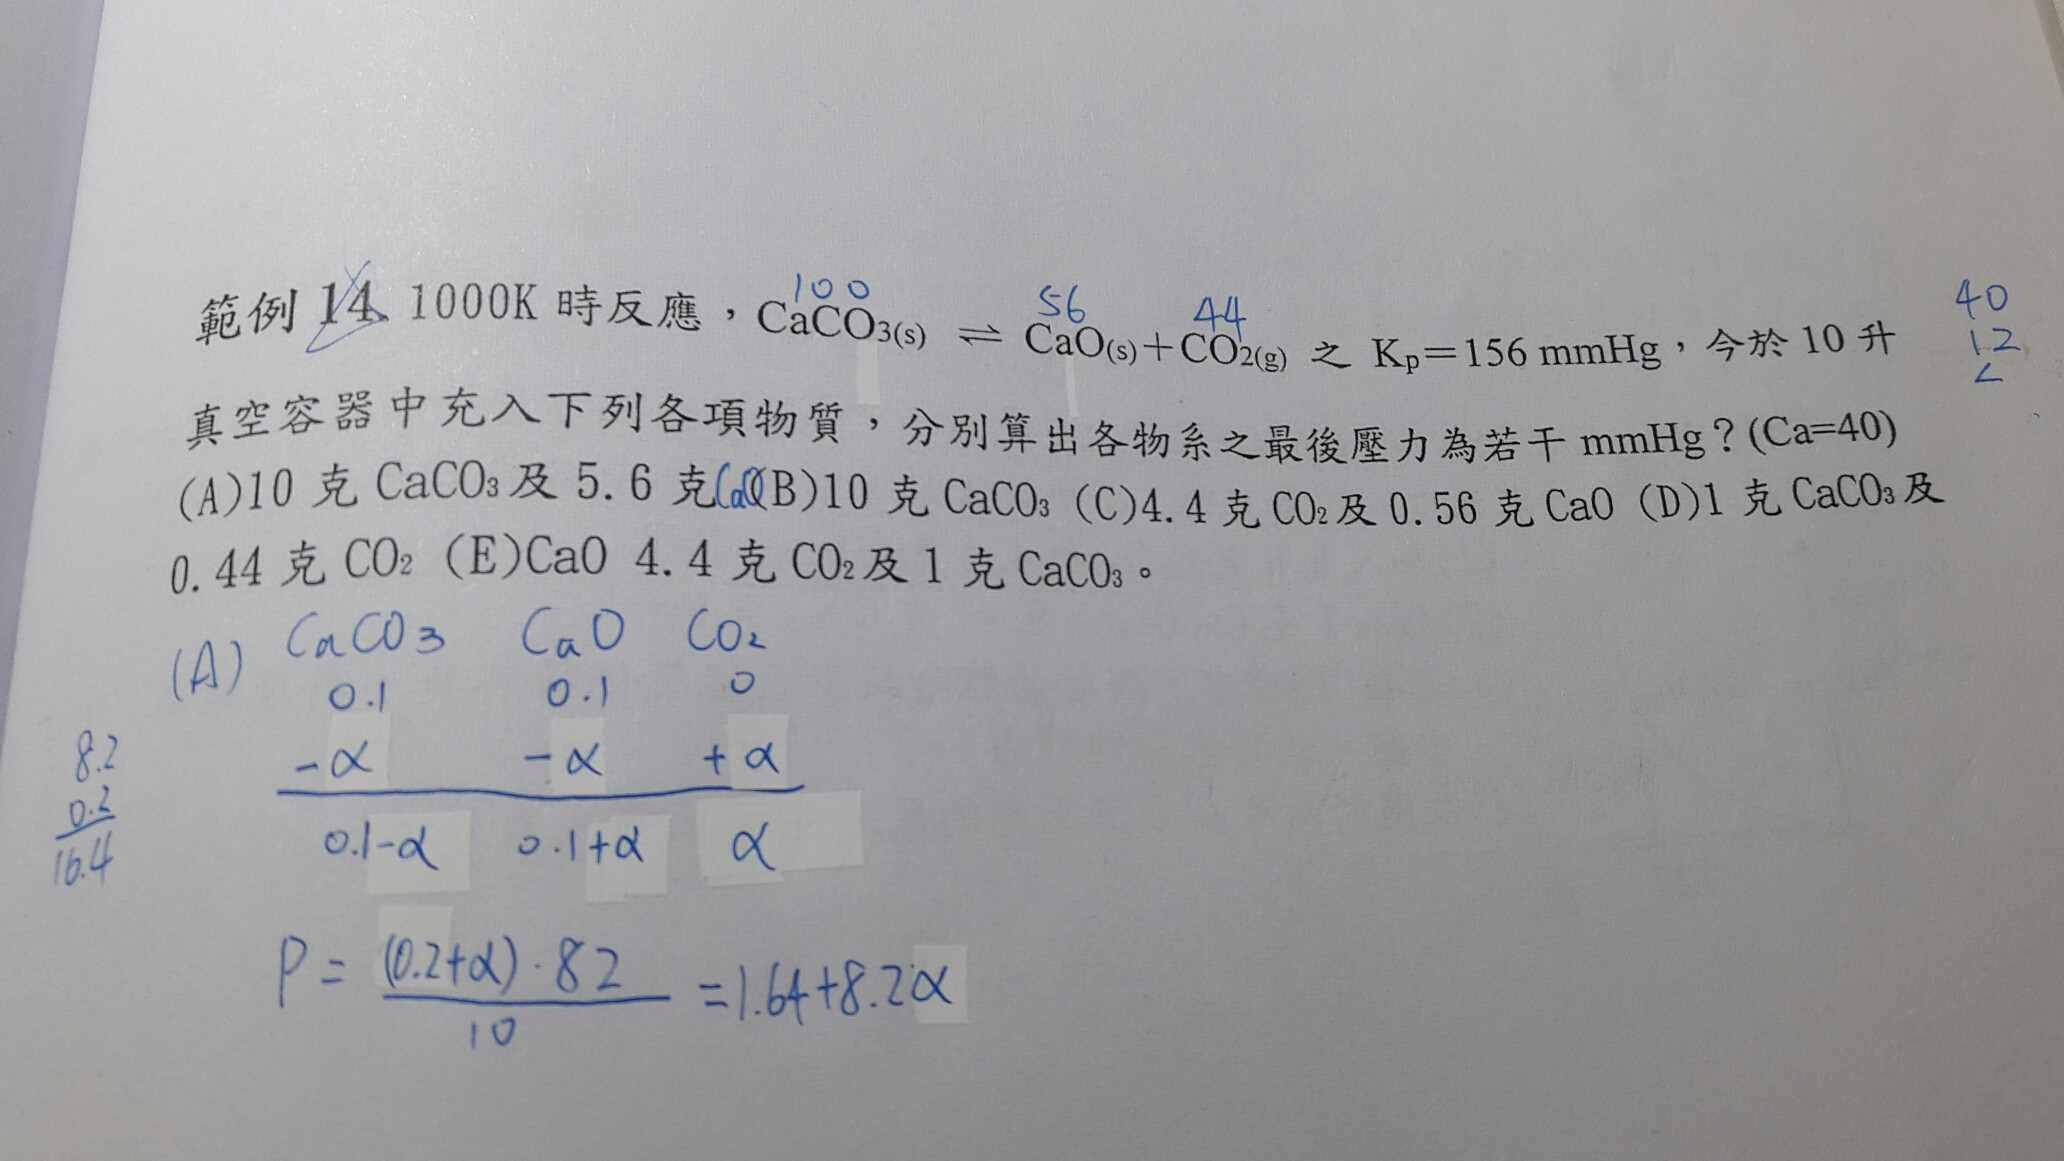 100 56 44 40
範例 14、1000K 時反應，CaCO₃(s) ⇌ CaO(s)+CO₂(g) 之 Kp=156 mmHg，今於 10 升
12
真空容器中充入下列各項物質，分別算出各物系之最後壓力為若干 mmHg？(Ca=40)
(A)10 克 CaCO₃及 5.6 克CaO(B)10 克 CaCO₃ (C)4.4 克 CO₂及 0.56 克 CaO (D)1 克 CaCO₃及
0.44 克 CO₂ (E)CaO 4.4 克 CO₂及 1 克 CaCO₃。
(A) CaCO3 CaO CO₂
0.1 0.1 0
-α -α +α
0.1-α 0.1+α α
8.2
0.2
16.4
P = (0.2+α)·82 / 10 =1.64+8.2α